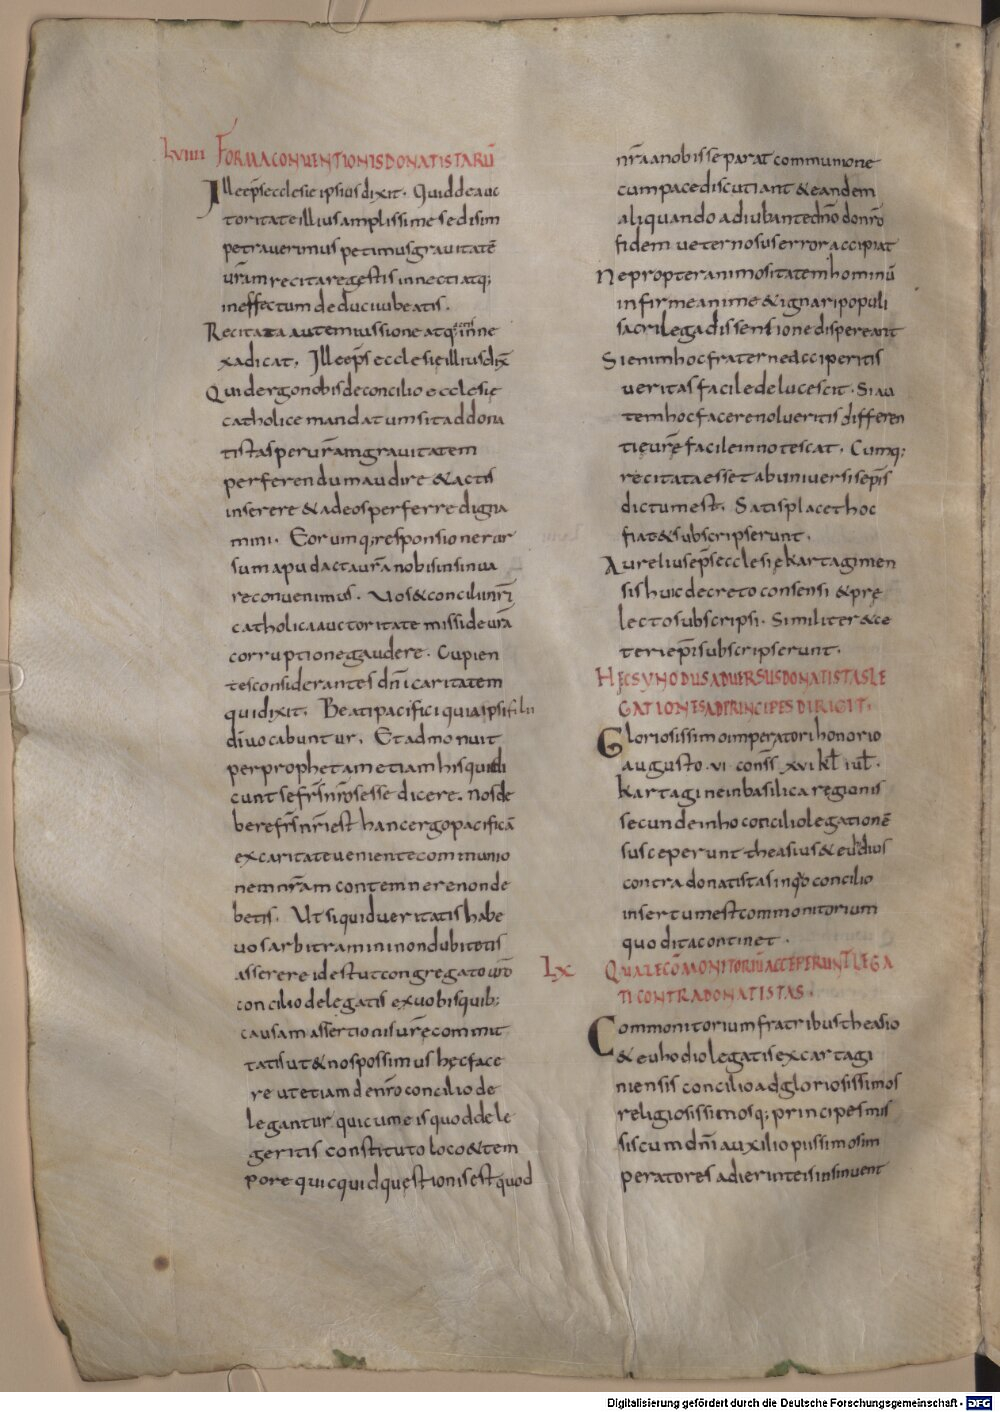 LVIIII FORMA CONUENTIONIS DONATISTARŪ
Ille ep̄s ecclesie ipsius dixit. Quid de auc
toritate illius amplissime sedis im
petrauerimus petimus grauitatē
ur̄am recitare gestis innecti atq;
in effectum deduci iubeatis.
Recitata autem iussione atq;
xa dicat. Ille ep̄s ecclesię illius dix̄
Quid ergo nobis de concilio ecclesię
catholice mandatum sit ad dona
tistas per ur̄am grauitatem
perferendum audire & actis
inserere & ad eos perferre digna
mini. Eorumq; responsione rur
sum apud acta ur̄a nobis insinua
re conuenimus. Uos & concilii nr̄i
catholica auctoritate missi de ur̄a
corruptione gaudere. Cupien
tes considerantes dn̄i caritatem
qui dixit. Beati pacifici quia ipsi filii
dī uocabuntur. Et admonuit
per prophetam etiam his qui di
cunt se fr̄s nr̄os esse dicere. Nos de
bere fr̄s nr̄i est hanc ergo pacificā
ex caritate uenientem communio
nem nr̄am contemnere non de
betis. Ut si quid ueritatis habe
uos arbitramini non dubitetis
asserere id est ut congregato ur̄o
concilio delegatis ex uobis quib;
causam assertionis ur̄e commit
tatis ut & nos possimus hęc face
re ut etiam de nr̄o concilio de
legantur qui cum eis quod dele
geritis constituto loco & tem
pore quicquid questionis est quod
nr̄a a nobis separat communione
cum pace discutiant & eandem
aliquando adiubante dn̄o do nr̄o
fidem ueternosus error accipiat
Ne propter animositatem hominū
infirme anime & ignari populi
sacrilega dissensione dispereant
Si enim hoc fraterne acciperitis
ueritas facile delucescit. Si au
tem hoc facere nolueritis differen
tię ur̄e facile innotescat. Cumq;
recitata esset ab uniuersis ep̄is
dictum est. Satis placet hoc
fiat & subscripserunt.
Aurelius ep̄s ecclesię kartaginen
sis huic decreto consensi & pre
lecto subscripsi. Similiter & ce
teri ep̄i subscripserunt.
HĘC SYNODUS ADUERSUS DONATISTAS LE
GATIONES AD PRINCIPES DIRIGIT.
Gloriosissimo imperatori honorio
augusto .vi. cons̄s xvi kl̄ iul̄.
Kartagine in basilica regionis
secunde in ho concilio legationē
susceperunt theasius & euhdius
contra donatistas in qo concilio
insertum est commonitorium
quod ita continet.
LX QUALE CŌMONITORIŪ ACCEPERUNT LEGA
TI CONTRA DONATISTAS.
Commonitorium fratribus theasio
& euhodio legatis ex cartagi
niensis concilio ad gloriosissimos
religiosissimosq; principes mis
sis cum dn̄i auxilio piissimos im
peratores adierint eis insinuent
Digitalisierung gefördert durch die Deutsche Forschungsgemeinschaft - DFG